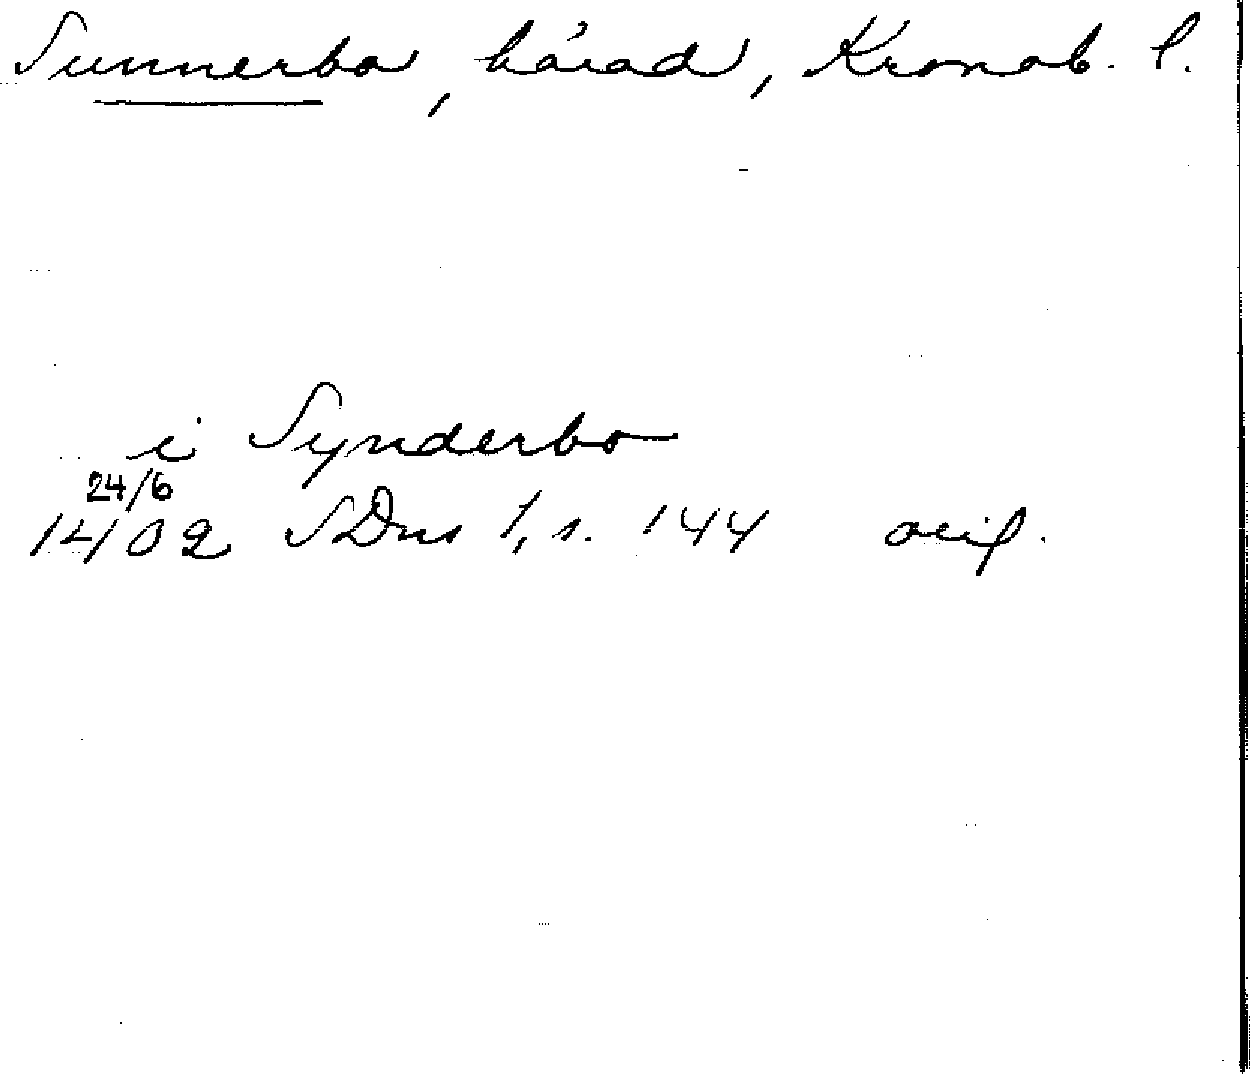 Sunnerbo, härad, Kronob. l.
i Synderbo
24/6
1402 SDns 1, s. 144 orig.